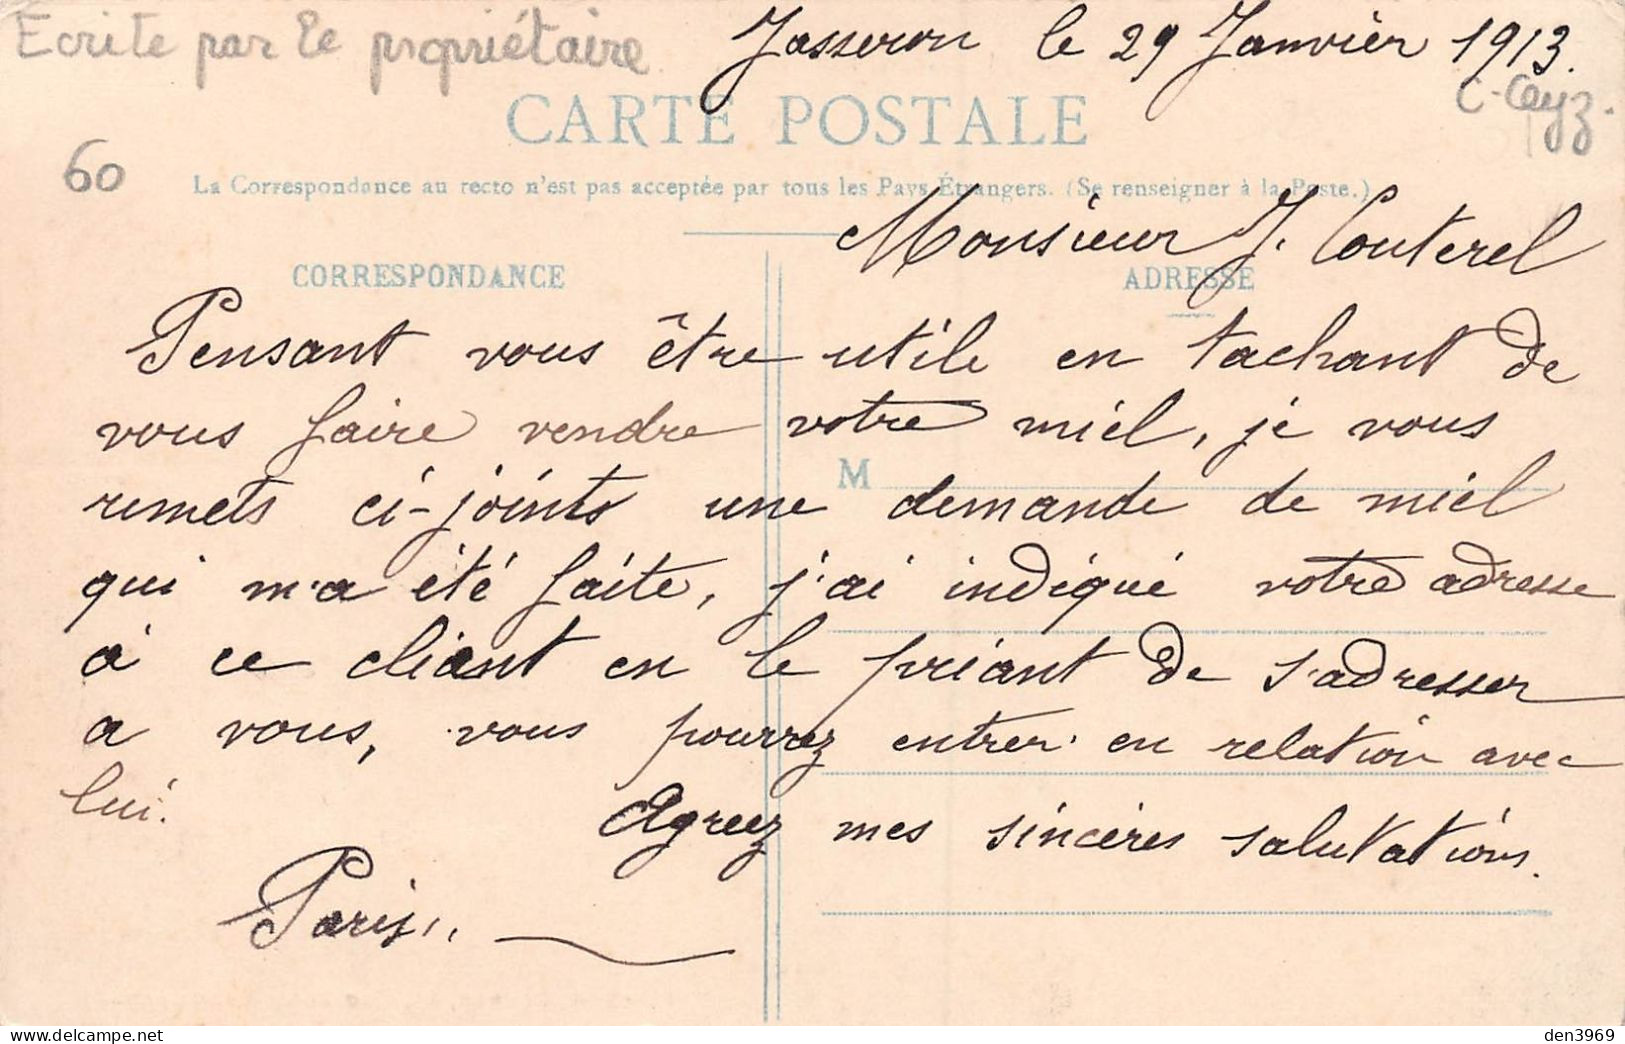 Ecrite par le propriétaire
Jasseron le 29 Janvièr 1913.
C-Ceyz.
CARTE POSTALE
60
La Correspondance au recto n'est pas acceptée par tous les Pays Étrangers. (Se renseigner à la Poste.)
Monsieur J. Couterel
CORRESPONDANCE
ADRESSE
Pensant vous être utile en tachant de
vous faire vendre votre miel, je vous
remets ci-joints une demande de miel
M
qui m'a été faite, j'ai indiqué votre adresse
à ce cliant en le priant de s'adresser
a vous, vous pourrez entrer en relation avec
lui. Agreez mes sincères salutations.
Paris
delcampe.net
den3969